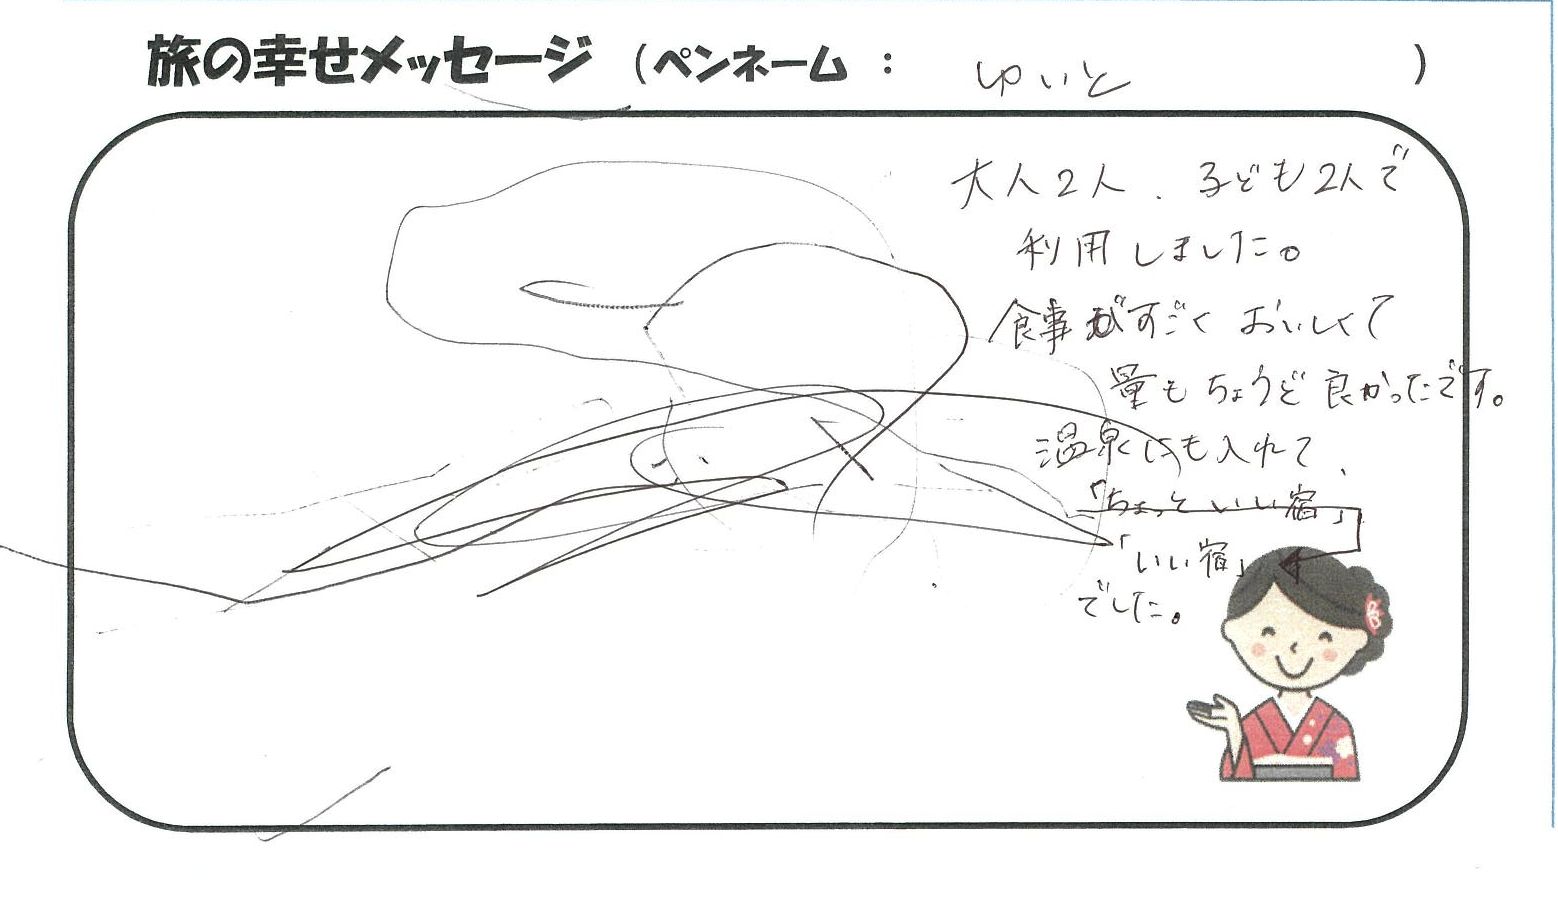 旅の幸せメッセージ （ペンネーム ： ゆいと ）
大人2人、子ども2人で
利用しました。
食事がすごくおいしくて
量もちょうど良かったです。
温泉にも入れて、
「ちょっといい宿」
「いい宿」
でした。